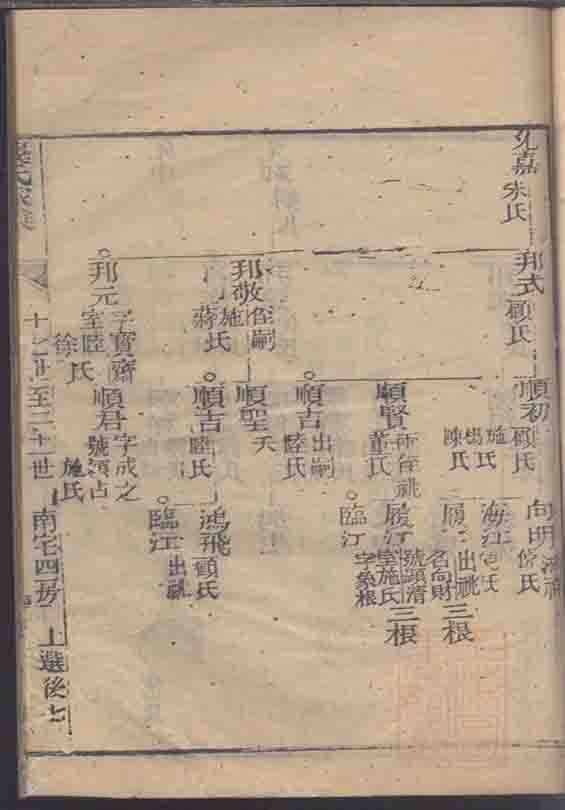 嘉 朱氏
邦式 顧氏
順初 顧氏
施氏
楊氏
陳氏
向明
氏
海江
氏
履
出祧
三根
順賢
董氏
履江
名尚財
號頭清
室施氏
三根
順吉 出嗣
陸氏
臨江
邦敬 侄嗣
施氏
蔣氏
順聖 夭
順吉
陸氏
鴻飛 顧氏
臨江 出祧
邦元 字寶齋
室陸氏
徐氏
順君 字成之
施氏
世至二十一世
南宅四房
上選後七